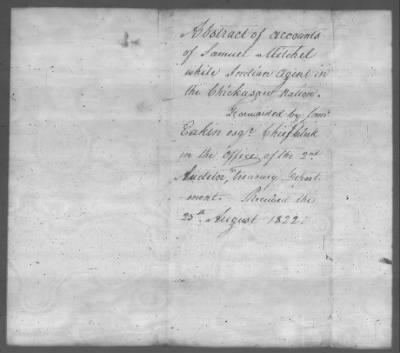 Abstract of accounts
of Samuel Mitchel
while Indian Agent in
the Chickasaw Nation.
Forwarded by Sam.
Eakin esqr. Chief Clerk
in the office, of the 2nd
Auditor, Treasury Depart
-ment. Received the
25th August 1822.